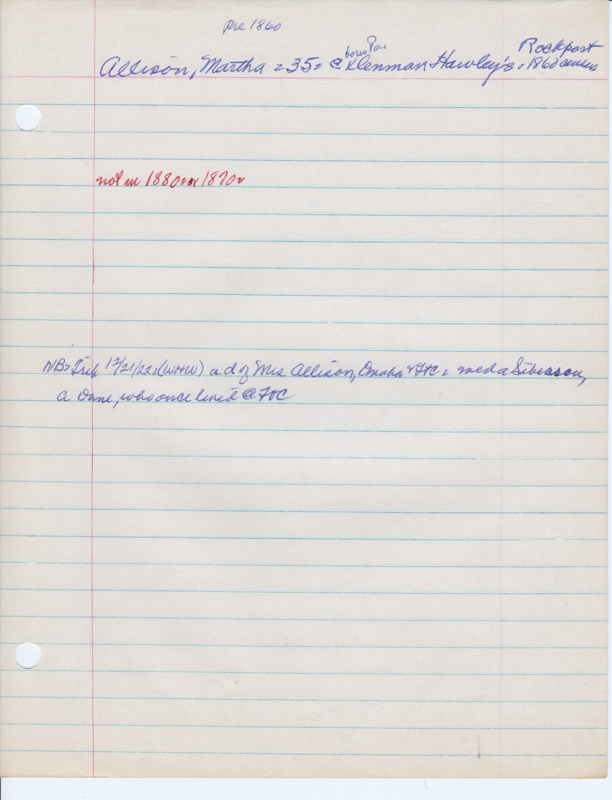 pre 1860
born Pa. Rockport
Allison, Martha = 35 = @ Klenman Hawley's, 1860 census
not in 1880 or 1870
NB = Trib 12/21/22 = (WHW) a d of Mrs Allison, Omaha & = med a
a Dane, who once lived @